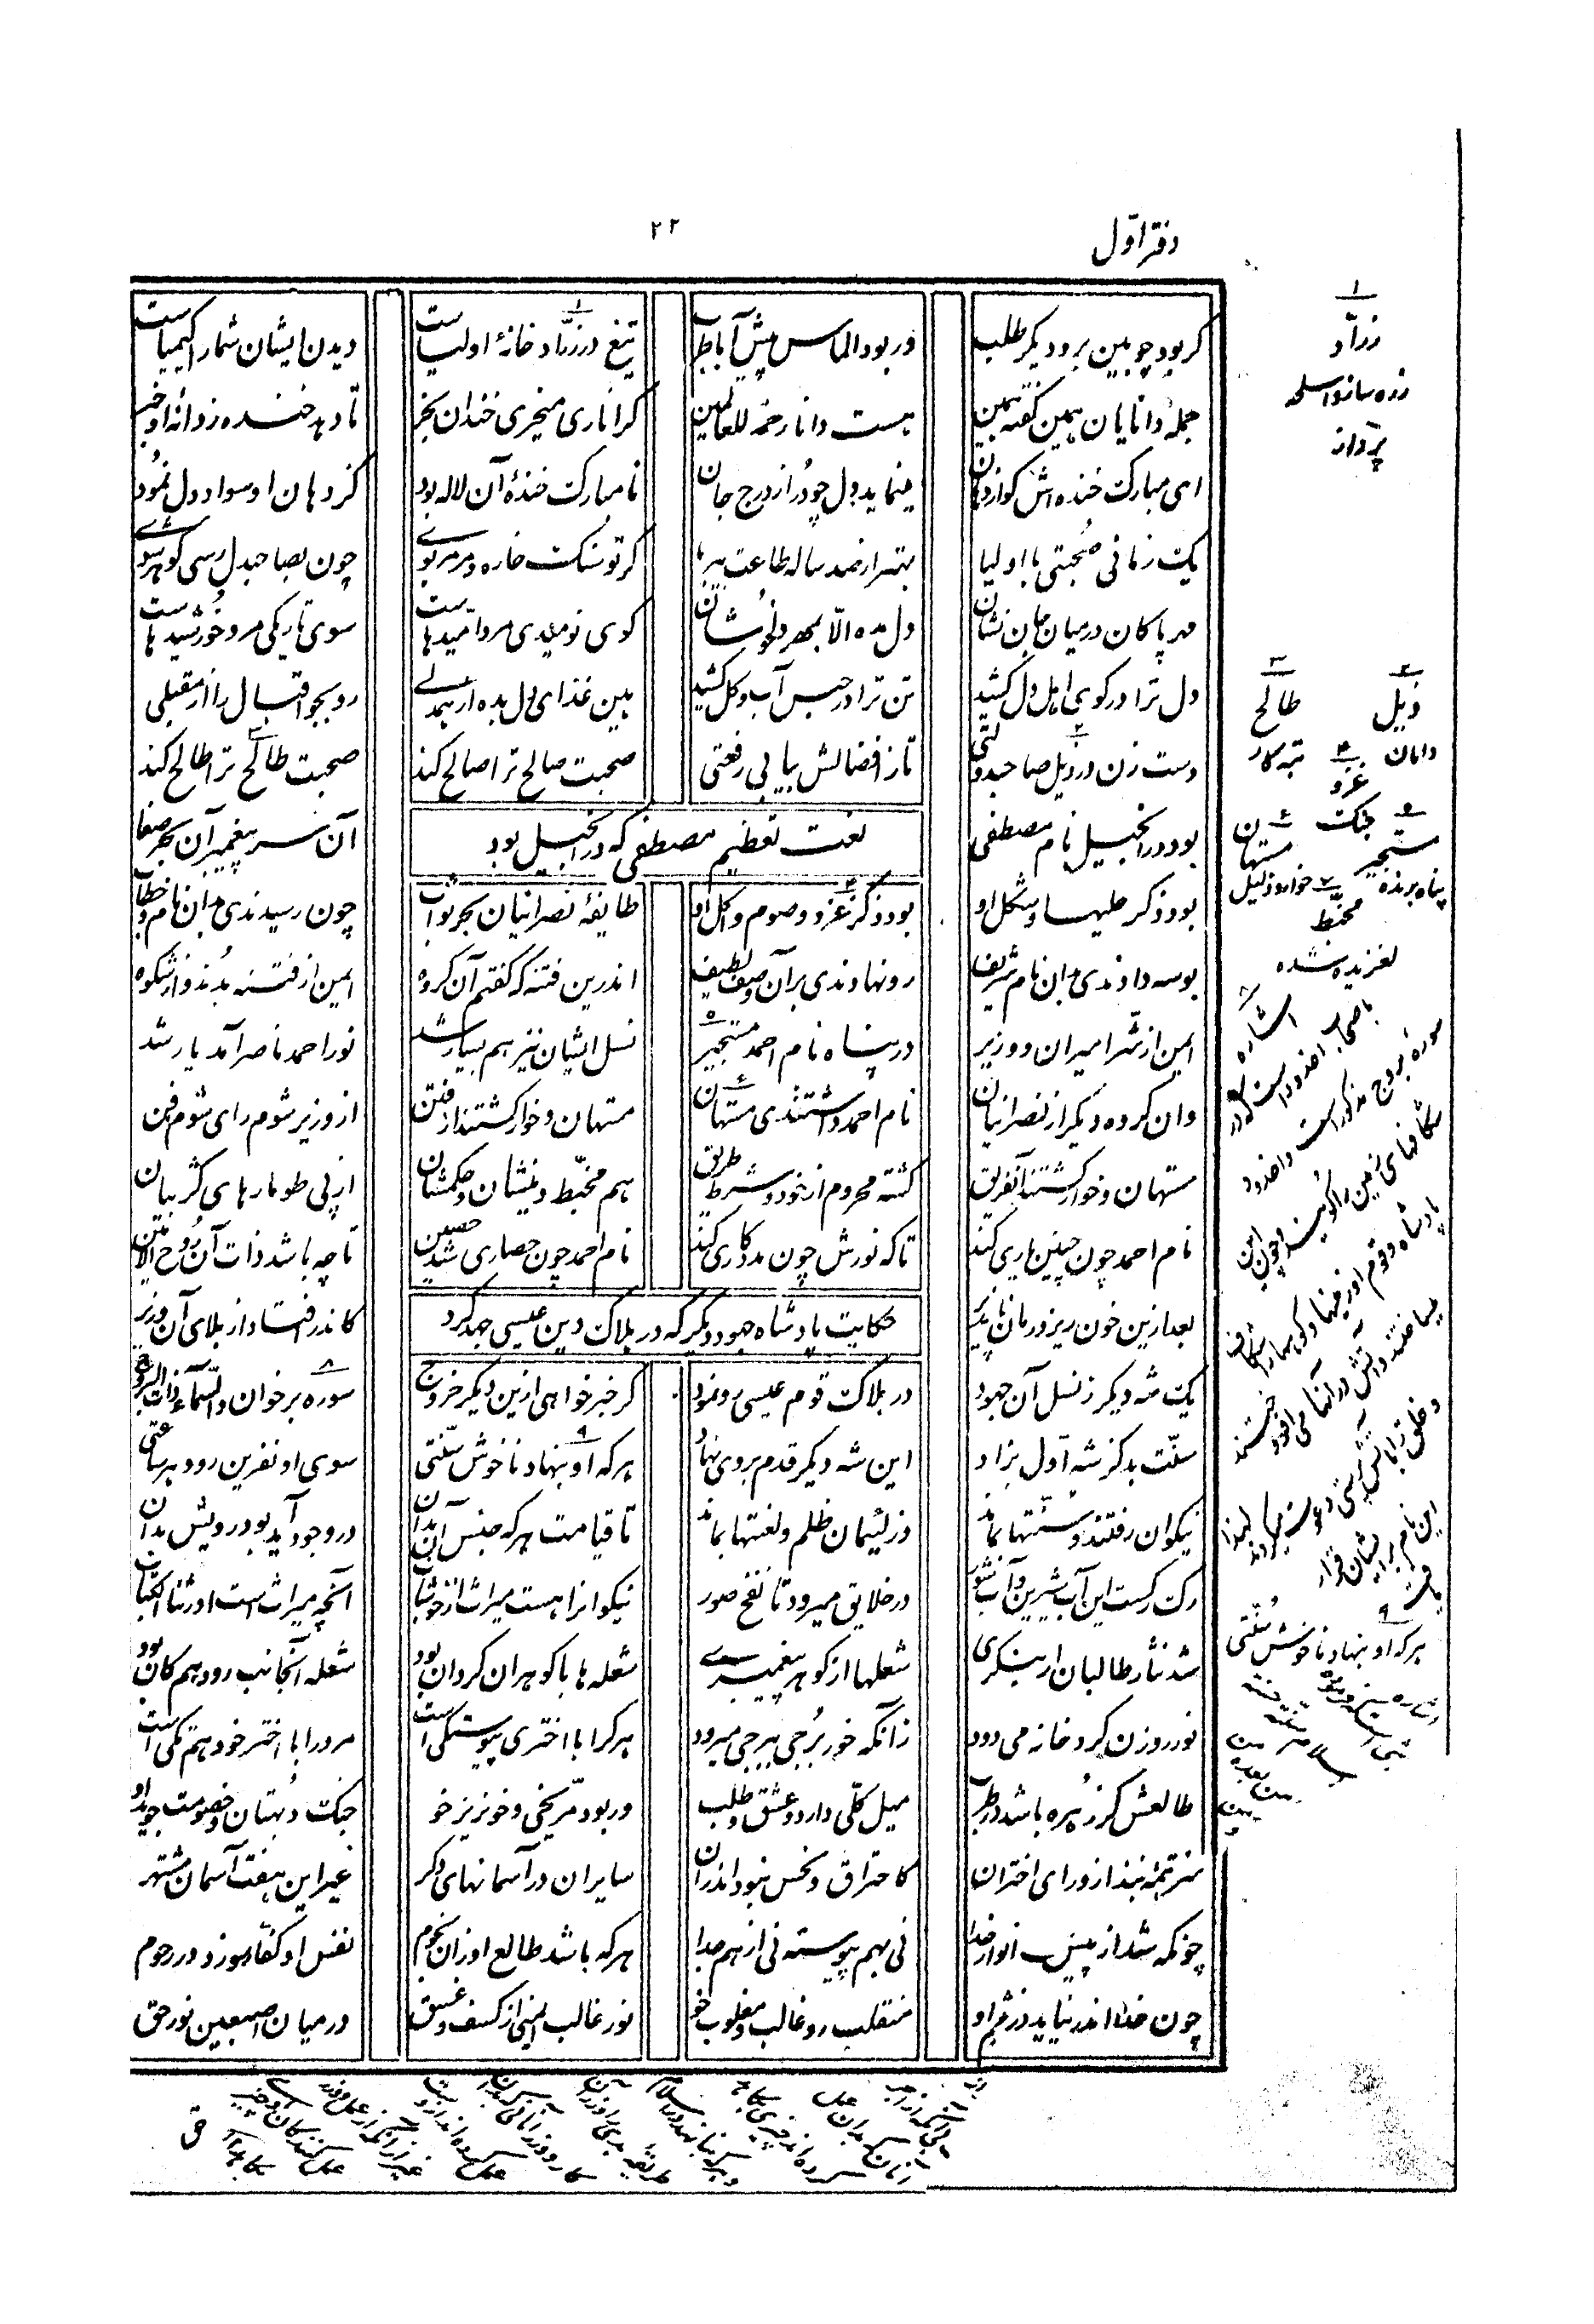 دفتر اوّل
۲۲
کر بود چوبین برو دیکر طلب
ور بود الماس پیش آ با طرب
تیغ در زرّاد خانهٔ اولیاست
دیدن ایشان شما را کیمیاست
جمله دانایان همین کفته همین
هست دانا رحمة للعالمین
کر اناری میخری خندان بخر
تا دهد خنده ز دانهٔ او خبر
ای مبارک خنده‌اش کو از دهان
مینماید دل چو دُر از درج جان
نامبارک خندهٔ آن لاله بود
کز دهان او سواد دل نمود
یک زمانی صحبتی با اولیا
بهتر از صد ساله طاعت بیریا
کر تو سنک خاره و مرمر بوی
چون بصاحبدل رسی کوهر شوی
مهر پاکان در میان جان نشان
دل مده الّا بمهر دلخوشان
کوی نومیدی مرو امّیدهاست
سوی تاریکی مرو خورشیدهاست
دل ترا در کوی اهل دل کشید
تن ترا در حبس آب و کل کشید
هین غذای دل بده از همدلی
رو بجو اقبال را از مقبلی
دست زن در ذیل صاحبدولتی
تا ز افضالش بیابی رفعتی
صحبت صالح ترا صالح کند
صحبت طالح ترا طالح کند
نعت تعظیم مصطفی که در انجیل بود
بود در انجیل نام مصطفی
آن سر پیغمبران بحر صفا
بود ذکر حلیها و شکل او
بود ذکر غزو و صوم و اکل او
طایفهٔ نصرانیان بهر ثواب
چون رسیدندی بدان نام و خطاب
بوسه دادندی بدان نام شریف
رو نهادندی بر آن وصف لطیف
اندرین فتنه که کفتم آن کروه
ایمن از فتنه بدند و از شکوه
ایمن از شرّ امیران و وزیر
در پناه نام احمد مستجیر
نسل ایشان نیز هم بسیار شد
نور احمد ناصر آمد یار شد
وان کروه دیکر از نصرانیان
نام احمد داشتندی مستهان
مستهان و خوار کشتند از فتن
از وزیر شوم رای شوم فن
مستهان و خوار کشتند آنفریق
کشته محروم از خود و شرط طریق
هم مخبّط دینشان و حکمشان
از پی طومارهای کژ بیان
نام احمد چون چنین یاری کند
تا که نورش چون مددکاری کند
نام احمد چون حصاری شد حصین
تا چه باشد ذات آن روح الامین
حکایت پادشاه جهود دیکر که در هلاک دین عیسی جهد کرد
بعد ازین خون ریز درمان ناپذیر
کاندر افتاد از بلای آن وزیر
یک شه دیکر ز نسل آن جهود
در هلاکت قوم عیسی رو نمود
کر خبر خواهی ازین دیکر خروج
سوره بر خوان والسّماء ذات البروج
سنّت بد کز شه اوّل بزاد
این شه دیکر قدم بر وی نهاد
هر که او بنهاد ناخوش سنّتی
سوی او نفرین رود هر ساعتی
نیکوان رفتند و سنّتها بماند
وز لئیمان ظلم و لعنتها بماند
تا قیامت هر که جنس آن بدان
در وجود آید بود رویش بدان
رک رکست این آب شیرین و آب شور
در خلایق میرود تا نفخ صور
نیکوانرا هست میراث از خوشاب
آنچه میراث است اورثنا الکتاب
شد نثار طالبان ار بنکری
شعلها از کوهر پیغمبری
شعله‌ها با کوهران کردان بود
شعله آنجانب رود هم کان بود
نور روزن کرد خانه می دود
زانکه خور برجی ببرجی میرود
هر کرا با اختری پیوستکی است
مرورا با اختر خود هم تکی است
طالعش کر زهره باشد در طرب
میل کلّی دارد و عشق و طلب
ور بود مرّیخی و خونریز خو
جنک و بهتان و خصومت جوید او
اخترانند از ورای اختران
کاحتراق و نحس نبود اندر آن
سایران در آسمانهای دکر
غیر این هفت آسمان مشتهر
چونکه شد از پیش انوار خدا
نی بهم پیوسته نی از هم جدا
هر که باشد طالع او زان نجوم
نفس او کفّار سوزد در رجوم
چون خدا اندر نیاید خشم او
منقلب رو غالب و مغلوب خو
نور غالب ایمن از کسف و غسق
در میان اصبعین نور حق
۱
زرّاد
زره ساز و اسلحه
پرداز
۲
ذیل
دامان
۳
طالح
تبه کار
۴
غزو
جنک
۵
مستجیر
پناه برنده
۶
مستهان
خوار و ذلیل
۷
مخبّط
لغزیده شده
۸
اشاره
باصحاب اخدود است که در
سوره بروج مذکور است و اخدود
شکافهای زمین را کویند و چون این
پادشاه و قوم او زمینها و کوهها را شکاف
میساختند و آتش در آنها می افروختند
این نام بر ایشان قرار
یافت
۹
هر که او بنهاد ناخوش سُنّتی